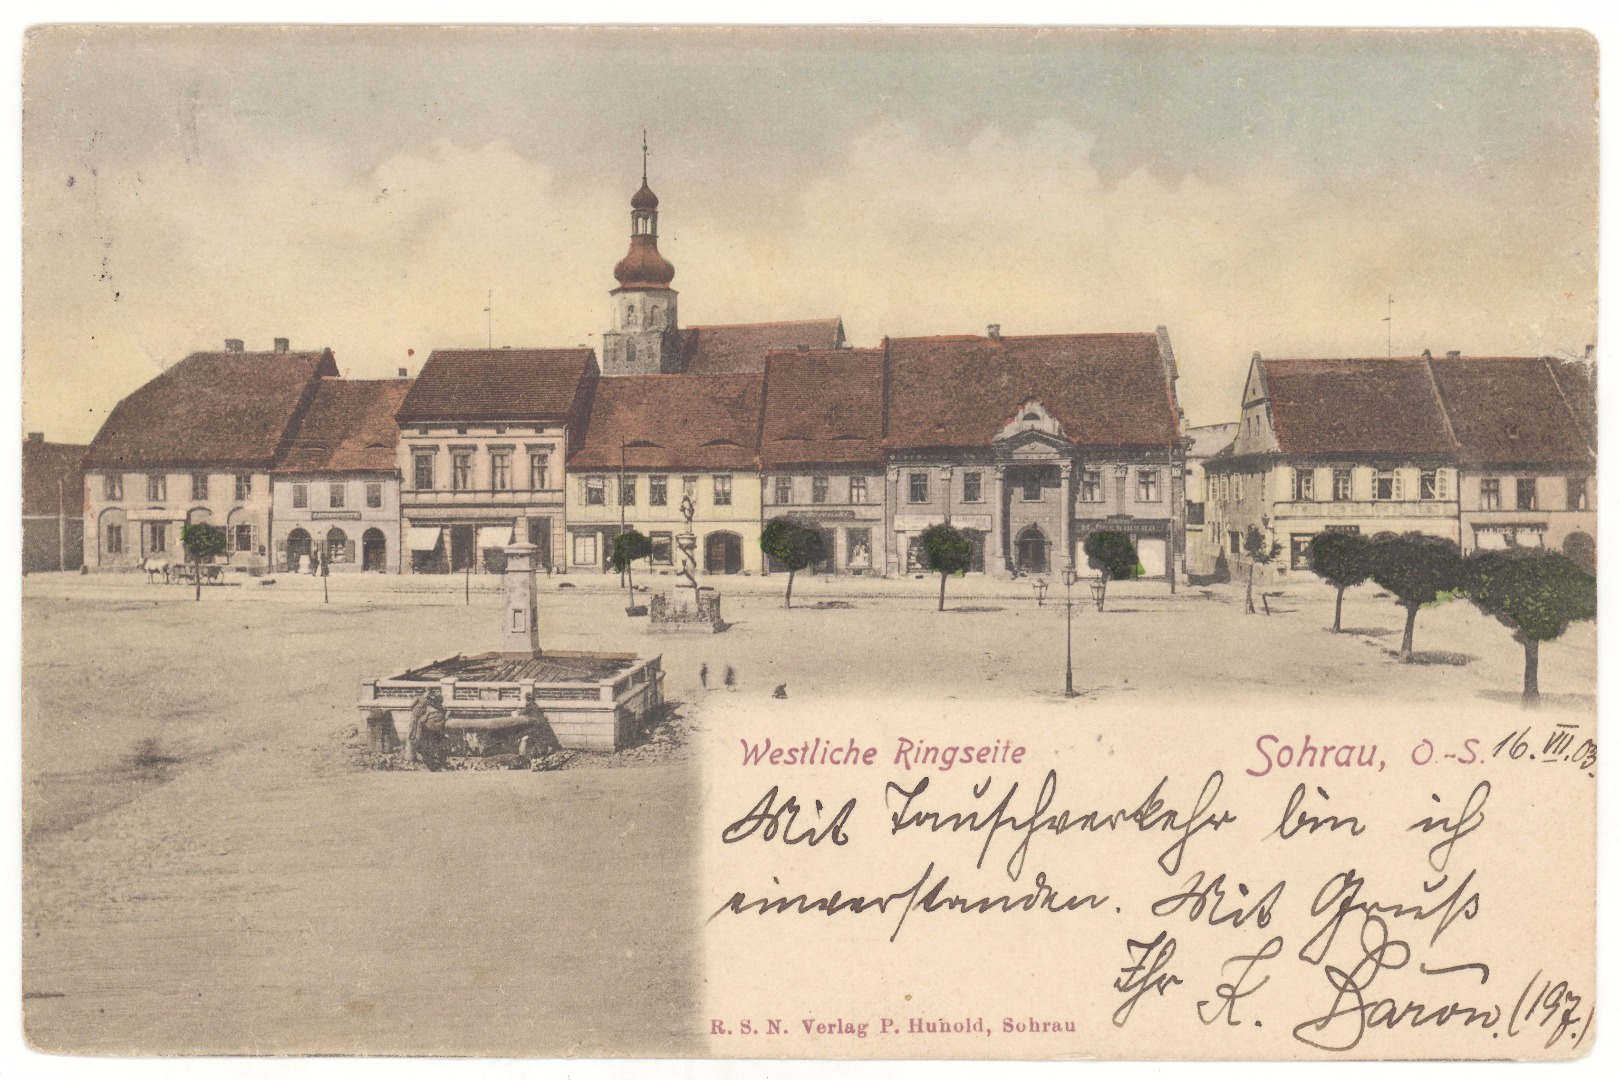 Westliche Ringseite
Sohrau, O.-S. 16. VII. 03.
Mit Tauschverkehr bin ich
einverstanden. Mit Gruß
Ihr K. Baron. (197.)
R. S. N. Verlag P. Hunold, Sohrau